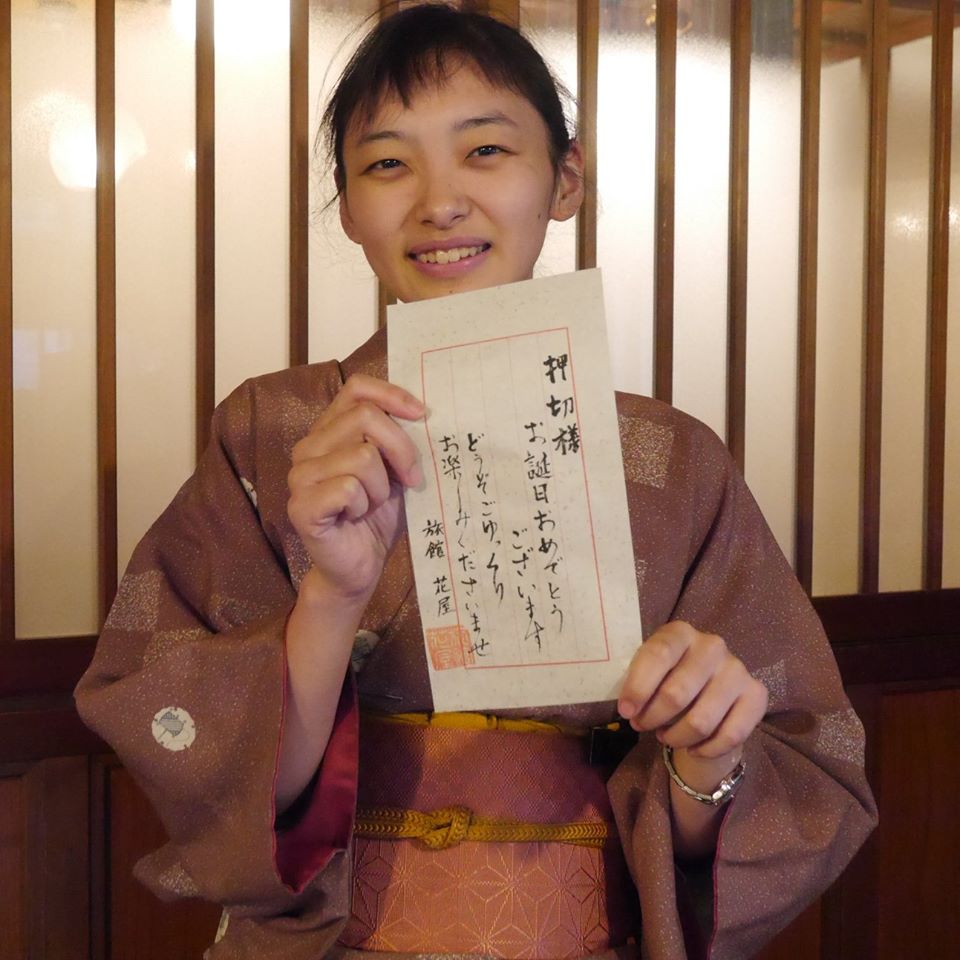 押切様
お誕日おめでとう
ございます
どうぞごゆっくり
お楽しみくださいませ
旅館 花屋